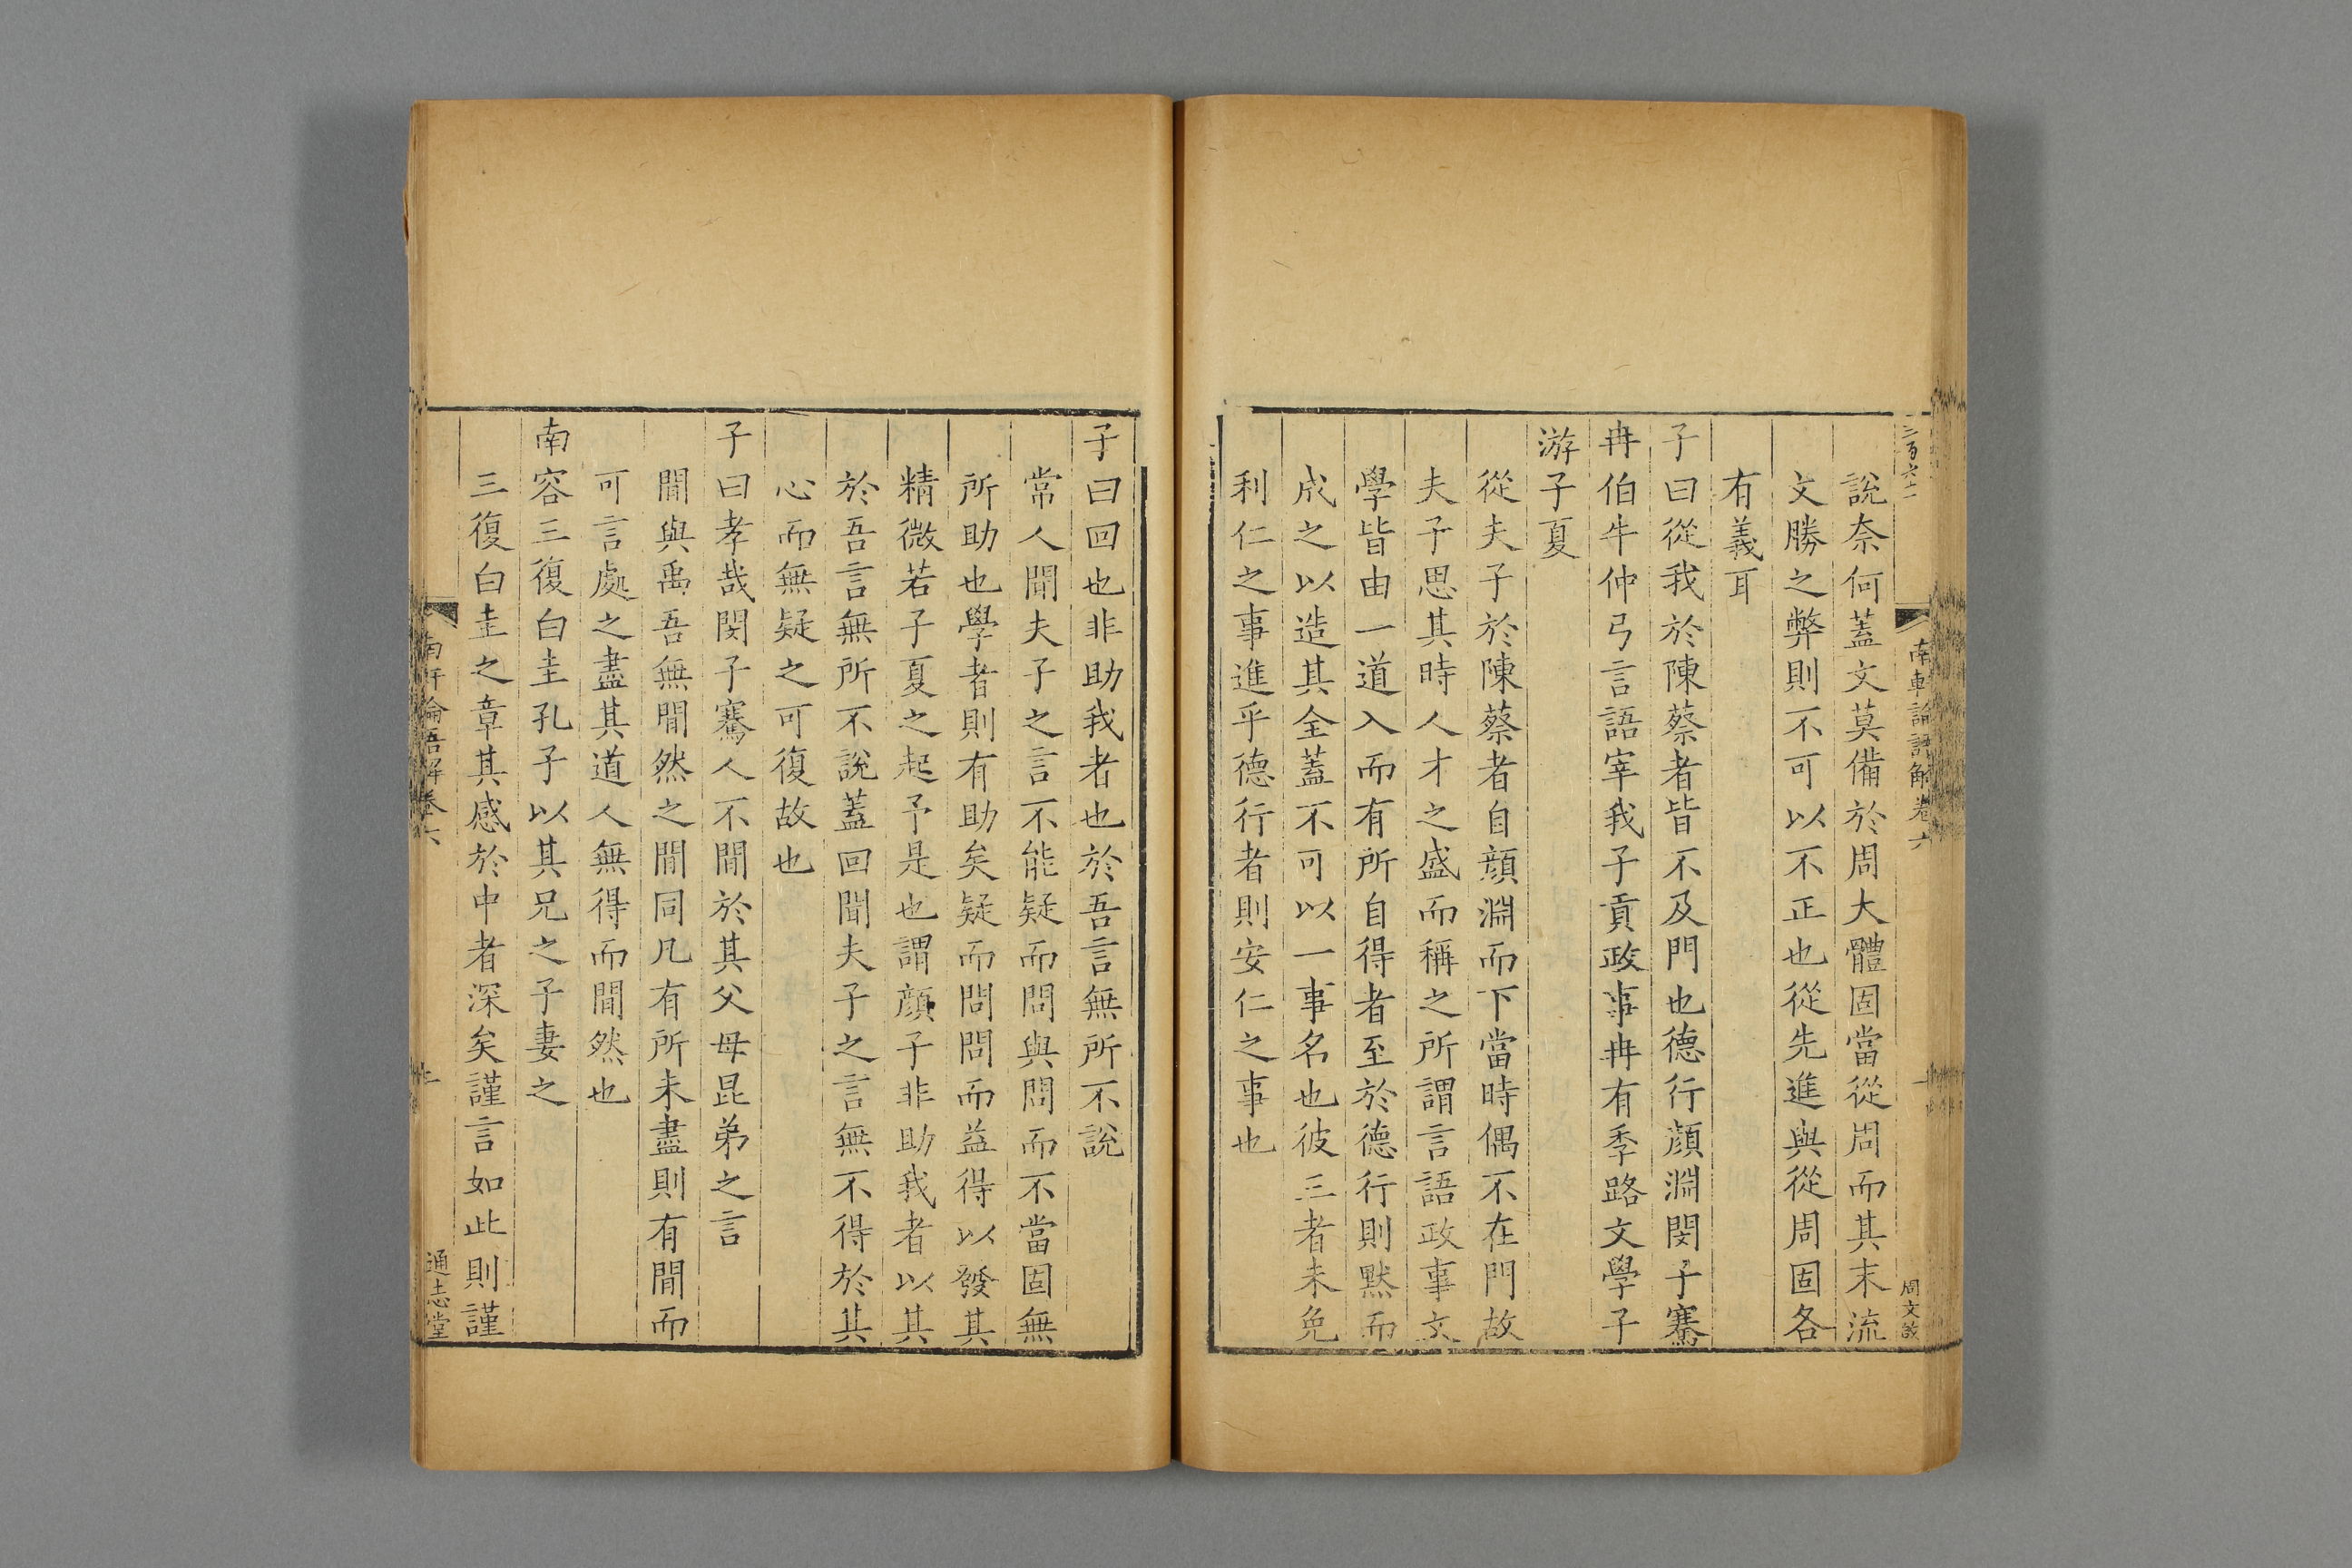 說奈何蓋文莫備於周大體固當從周而其末流
文勝之弊則不可以不正也從先進與從周固各
有義耳
子曰從我於陳蔡者皆不及門也德行顏淵閔子騫
冉伯牛仲弓言語宰我子貢政事冉有季路文學子
游子夏
從夫子於陳蔡者自顏淵而下當時偶不在門故
夫子思其時人才之盛而稱之所謂言語政事文
學皆由一道入而有所自得者至於德行則默而
成之以造其全蓋不可以一事名也彼三者未免
利仁之事進乎德行者則安仁之事也
子曰回也非助我者也於吾言無所不說
常人聞夫子之言不能疑而問與問而不當固無
所助也學者則有助矣疑而問問而益得以發其
精微若子夏之起予是也謂顏子非助我者以其
於吾言無所不說蓋回聞夫子之言無不得於其
心而無疑之可復故也
子曰孝哉閔子騫人不閒於其父母昆弟之言
閒與禹吾無閒然之閒同凡有所未盡則有閒而
可言處之盡其道人無得而閒然也
南容三復白圭孔子以其兄之子妻之
三復白圭之章其感於中者深矣謹言如此則謹
南軒論語解卷六
通志堂